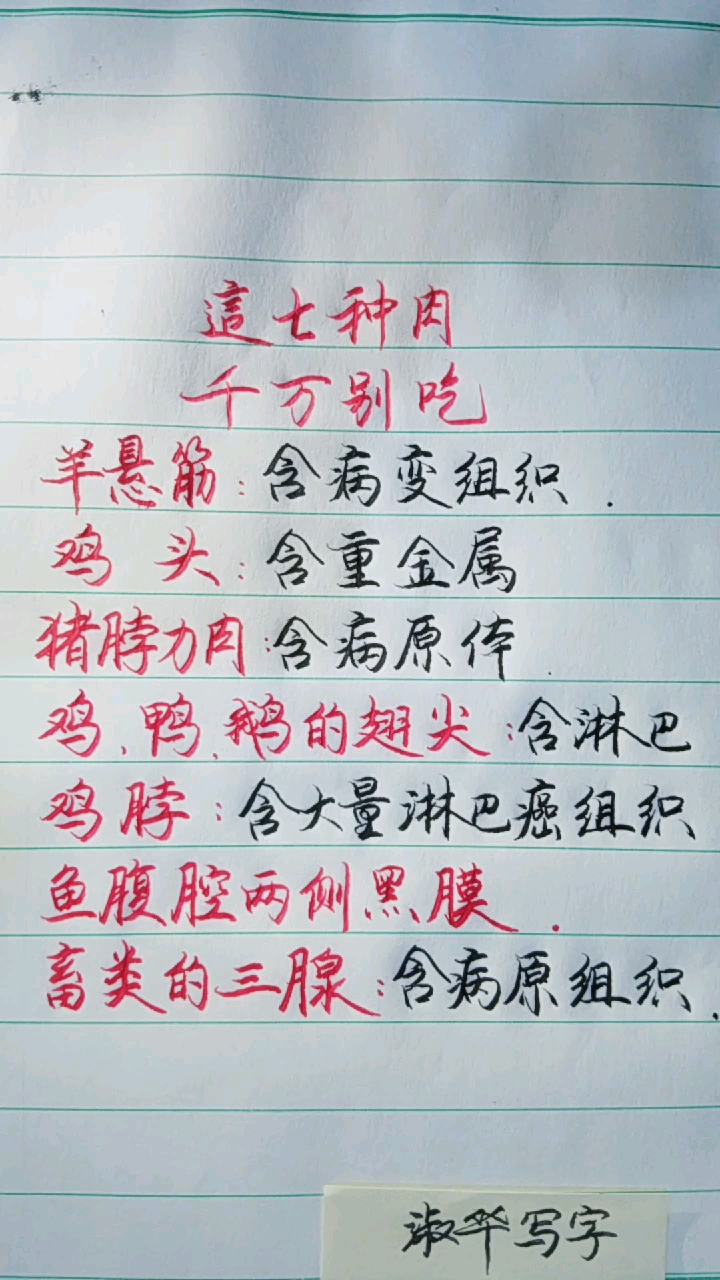 這七种肉
千万别吃
羊悬筋:含病变组织.
鸡头:含重金属
猪脖力肉:含病原体.
鸡、鸭、鹅的翅尖:含淋巴
鸡脖:含大量淋巴癌组织
鱼腹腔两侧黑膜.
畜类的三腺:含病原组织.
淑华写字